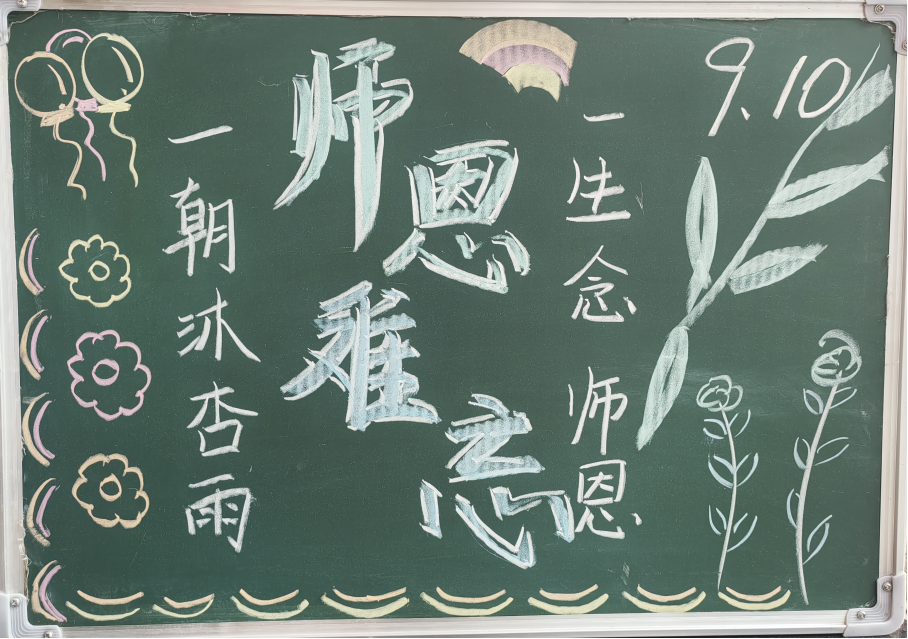 9.10
师恩难忘
一朝沐杏雨
一生念师恩